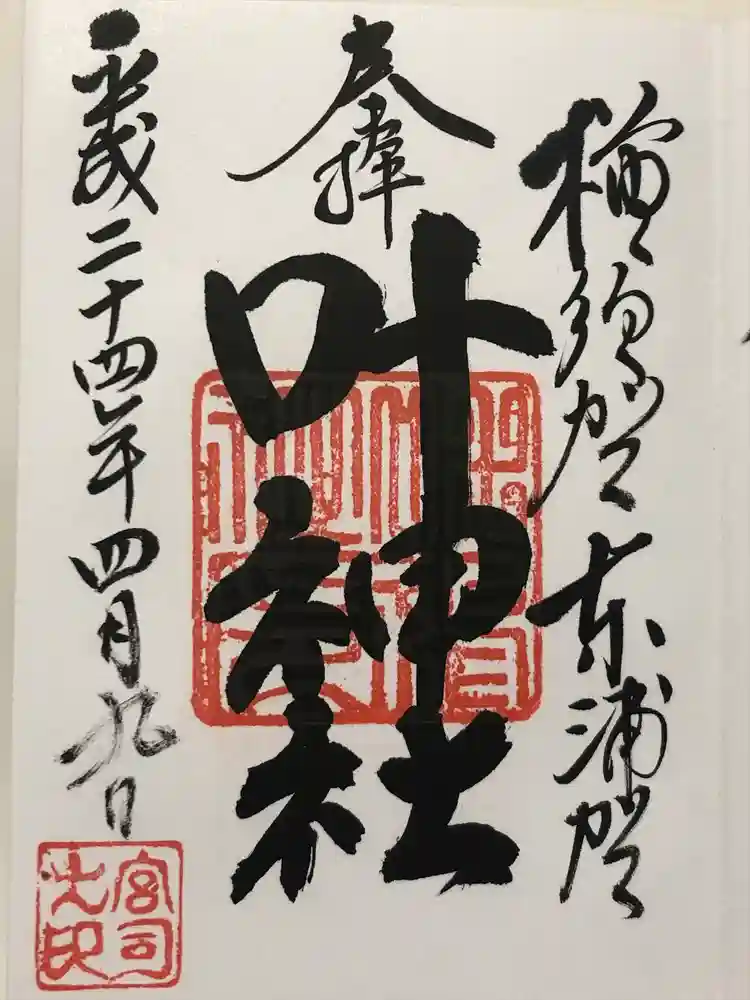 横須賀 東浦賀
奉拝
叶神社
平成二十四年四月九日
宮司之印